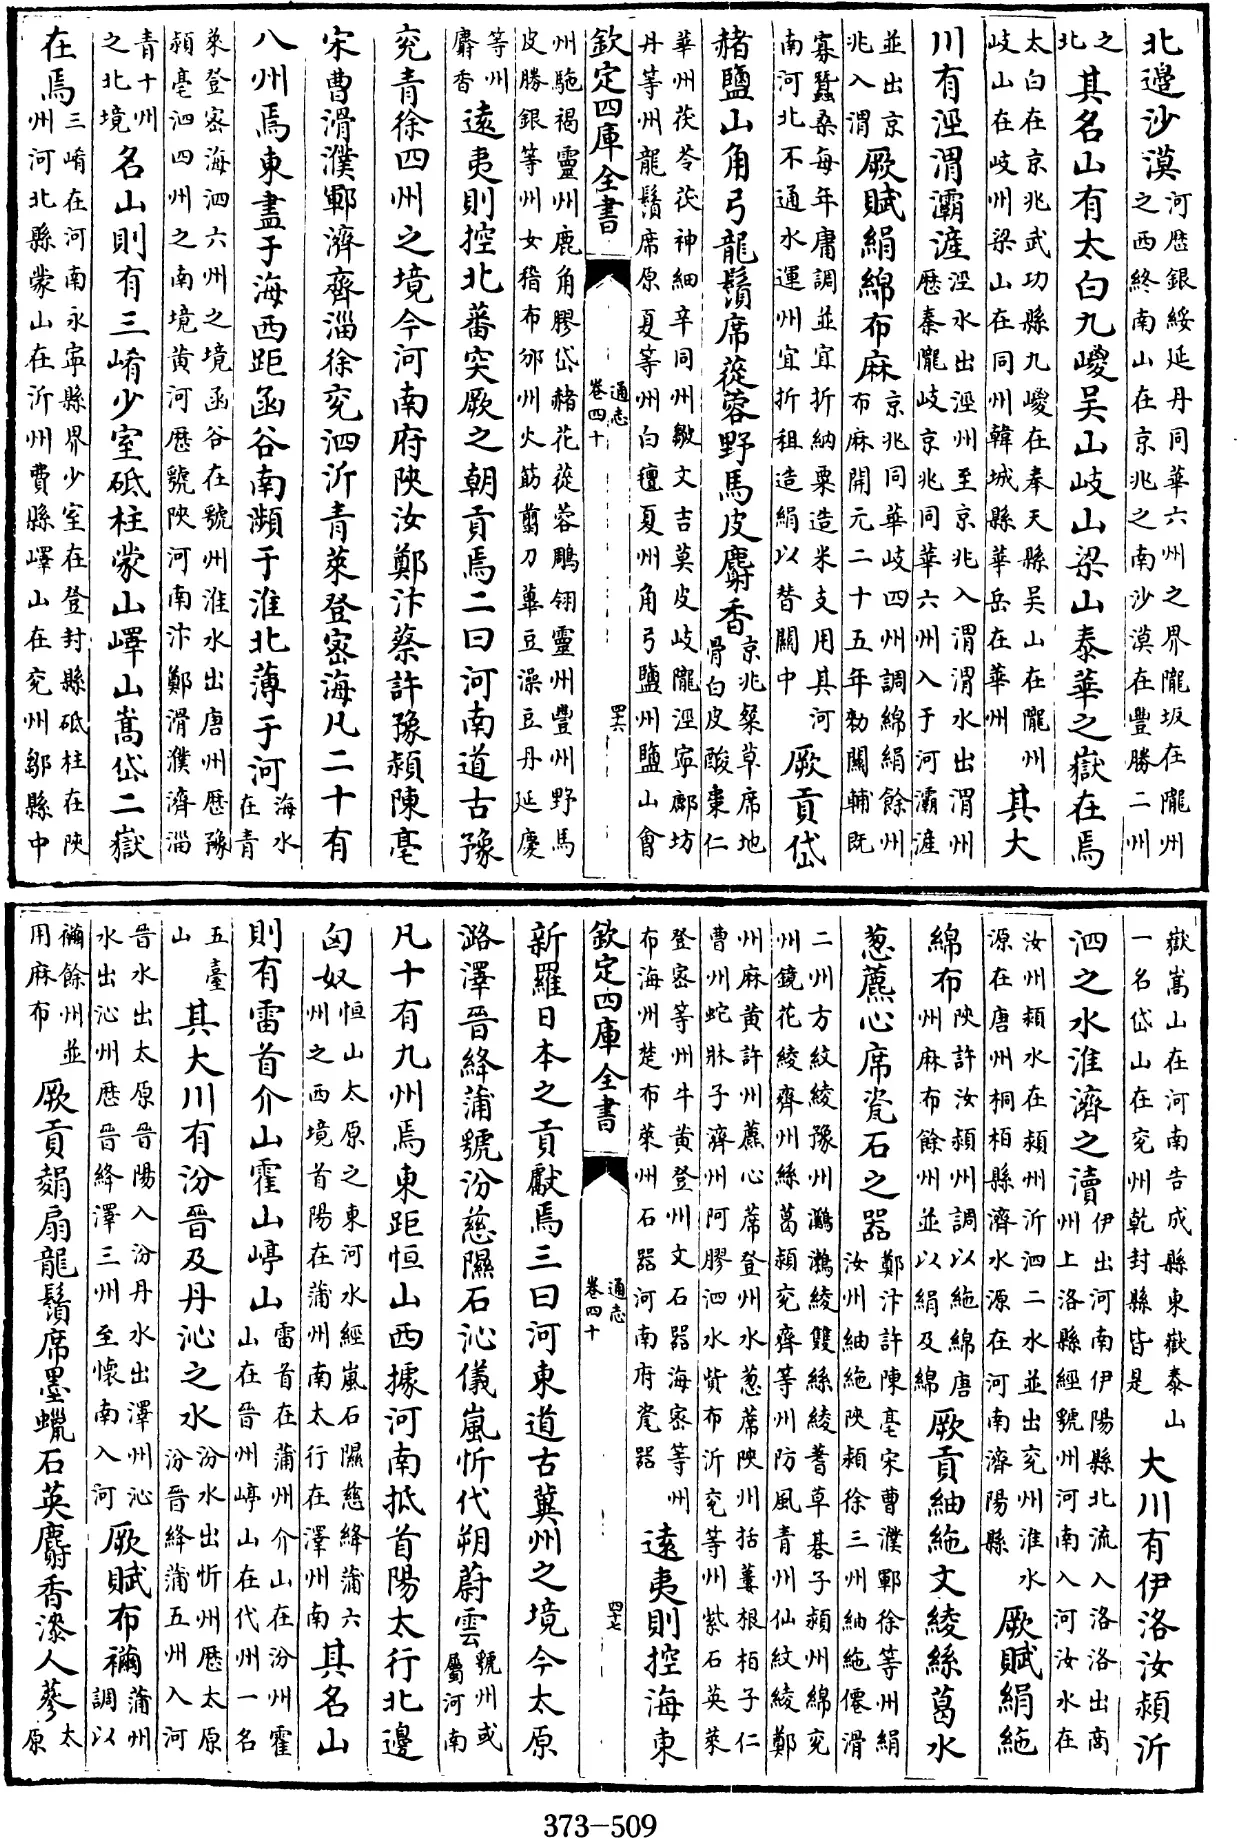 北邊沙漠河歴銀綏延丹同華六州之界隴坂在隴州之西終南山在京兆之南沙漠在豐勝二州
之北其名山有太白九嵕吴山岐山梁山泰華之嶽在焉
太白在京兆武功縣九嵕在奉天縣吴山在隴州岐山在岐州梁山在同州韓城縣華岳在華州其大
川有涇渭灞滻涇水出涇州至京兆入渭渭水出渭州歴秦隴岐京兆同華六州入于河灞滻
並出京兆入渭厥賦絹綿布麻京兆同華岐四州調綿絹餘州布麻開元二十五年勑關輔既
寡蠶桑每年庸調並宜折納粟造米支用其河南河北不通水運州宜折租造絹以替關中厥貢岱
赭鹽山角弓龍鬚席蓯蓉野馬皮麝香京兆粲草席地骨白皮酸棗仁
華州茯苓茯神細辛同州皺文吉莫皮岐隴涇寧鄜坊丹等州龍鬚席原夏等州白氊夏州角弓鹽州鹽山會
欽定四庫全書 通志卷四十 四六
州駞褐靈州鹿角膠岱赭花蓯蓉鵰翎靈州豐州野馬皮勝銀等州女稽布邠州火筯翦刀蓽豆澡豆丹延慶
等州麝香遠夷則控北蕃突厥之朝貢焉二曰河南道古豫
兖青徐四州之境今河南府陜汝鄭汴蔡許豫潁陳亳
宋曹滑濮鄆濟齊淄徐兖泗沂青萊登密海凡二十有
八州焉東盡于海西距函谷南瀕于淮北薄于河海水在青
萊登密海泗六州之境函谷在虢州淮水出唐州歴豫潁亳泗四州之南境黄河歴虢陜河南汴鄭滑濮濟淄
青十州之北境名山則有三崤少室砥柱蒙山嶧山嵩岱二嶽
在焉三崤在河南永寧縣界少室在登封縣砥柱在陜州河北縣蒙山在沂州費縣嶧山在兖州鄒縣中
嶽嵩山在河南告成縣東嶽泰山一名岱山在兖州乾封縣皆是大川有伊洛汝潁沂
泗之水淮濟之瀆伊出河南伊陽縣北流入洛洛出商州上洛縣經虢州河南入河汝水在
汝州潁水在潁州沂泗二水並出兖州淮水源在唐州桐柏縣濟水源在河南濟陽縣厥賦絹絁
綿布陜許汝潁州調以絁綿唐州麻布餘州並以絹及綿厥貢紬絁文綾絲葛水
葱藨心席瓷石之器鄭汴許陳亳宋曹濮鄆徐等州絹汝州紬絁陜潁徐三州紬絁僊滑
二州方紋綾豫州鸂鶒綾雙絲綾蓍草碁子潁州綿兖州鏡花綾齊州絲葛潁兖齊等州防風青州仙紋綾鄭
州麻黄許州藨心蓆登州水葱蓆陜州括蔞根柏子仁曹州蛇牀子濟州阿膠泗水貲布沂兖等州紫石英萊
登密等州牛黄登州文石器海密等州布海州楚布萊州石器河南府瓷器遠夷則控海東
欽定四庫全書 通志卷四十 四七
新羅日本之貢獻焉三曰河東道古冀州之境今太原
潞澤晉絳蒲虢汾慈隰石沁儀嵐忻代朔蔚雲虢州或屬河南
凡十有九州焉東距恒山西據河南抵首陽太行北邊
匈奴恒山太原之東河水經嵐石隰慈絳蒲六州之西境首陽在蒲州南太行在澤州南其名山
則有雷首介山霍山崞山雷首在蒲州介山在汾州霍山在晉州崞山在代州一名
五臺山其大川有汾晉及丹沁之水汾水出忻州歴太原汾晉絳蒲五州入河
晉水出太原晉陽入汾丹水出澤州沁水出沁州歴晉絳澤三州至懷南入河厥賦布襺蒲州調以
襺餘州並用麻布厥貢㚼扇龍鬚席墨蠟石英麝香漆人葠太原
373-509